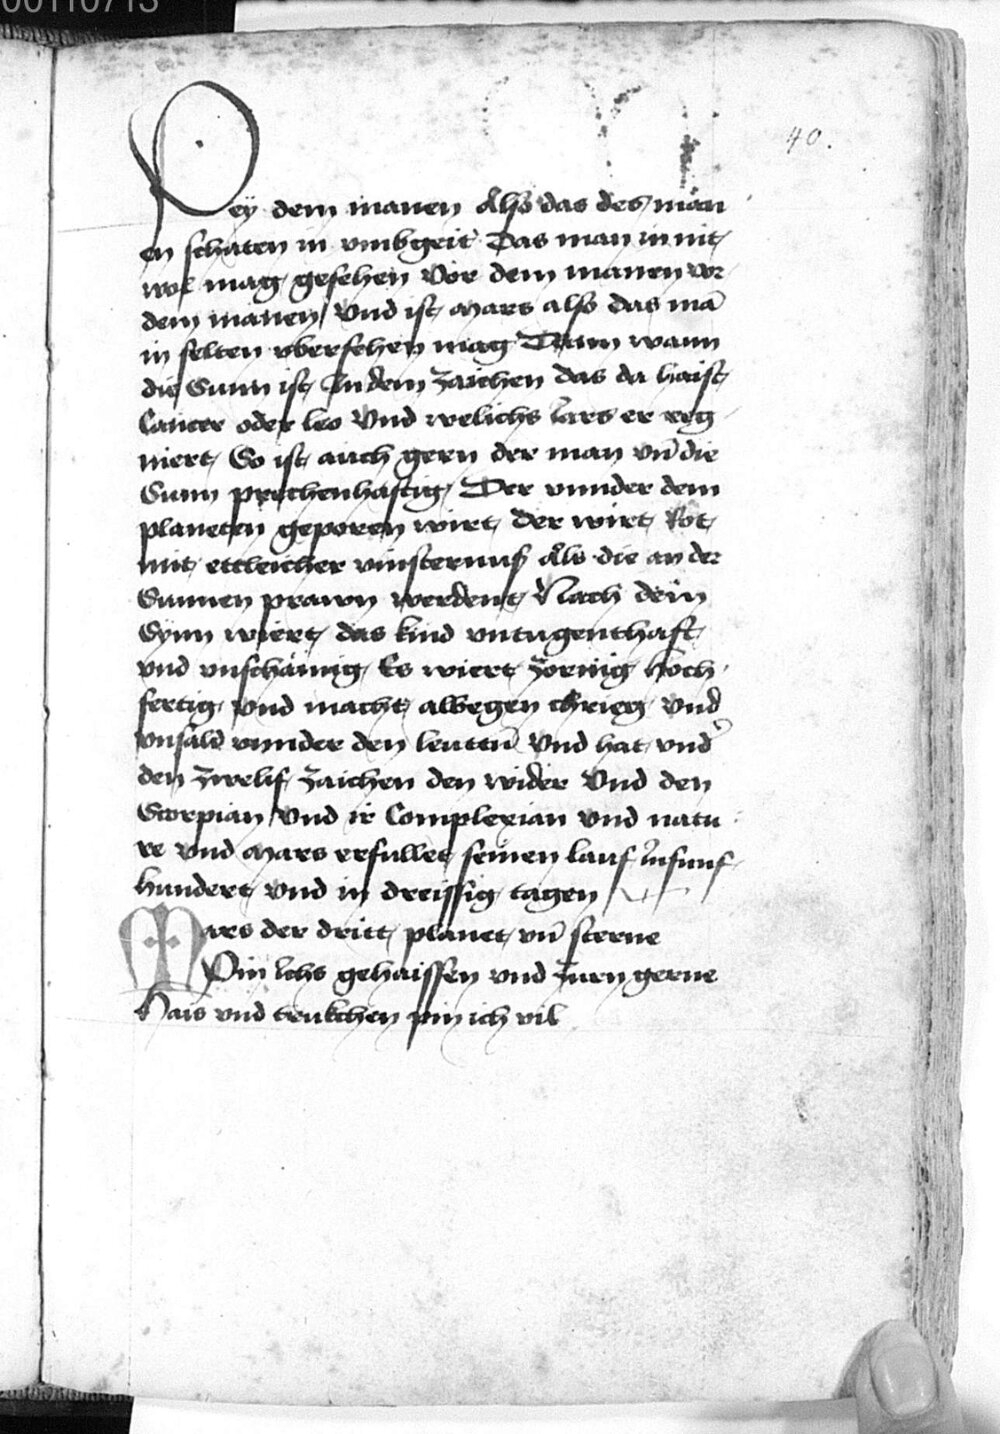 00110713
40.
Pey dem manen Also das des man
en schaten in vmbgeit Das man in nit
wol mag gesehen Vor dem manen vor
dem manen Vnd ist Mars also das mā
in selten vbersehen mag Dann wann
die Sunn ist In dem zaichen das da haist
Cancer oder leo Vnd welichs Iars er reg
niert So ist auch gern der man vn̄ die
Sunn prechenhaftig Der vnnder dem
planeten geporen wirt der wirt Rot
mit ettleicher vinsternuß Als die an der
Sunnen prawn werdent Nach dem
Synn wiert das kind vntugenthaft
vnd vnschämig Es wiert zornig hoch
fertig vnd macht albegen chrieg Vnd
vnsäld vnnder den leuttn̄ Vnd hat vnd'
den zwelif zaichen den wider Vnd den
Scorpian Vnd ir Complexian vnd natu
re vnd Mars erfullet seinen lauf Inf funf
hundert vnd in dreissig tagen
Mars der dritt planet vn̄ sterne
Pin Ichs gehaissen vnd zurn gerne
Hais vnd trukchen pin ich vil